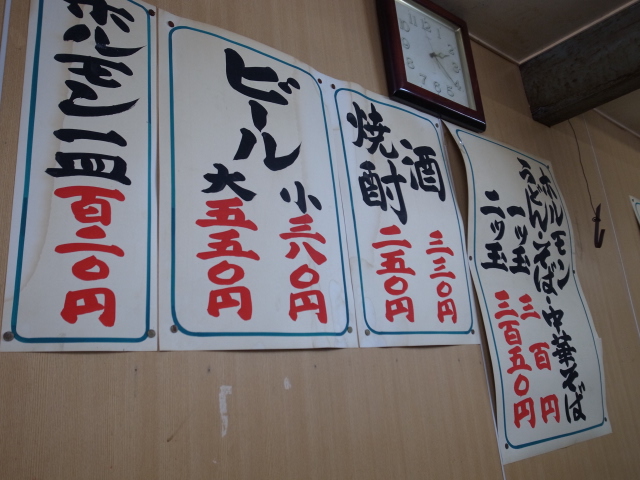 ホルモン一皿
百二〇円
ビール
小 三八〇円
大 五五〇円
酒
三三〇円
焼酎
二五〇円
ホルモン
うどん・そば・中華そば
一ッ玉 三百円
二ッ玉 三百五〇円